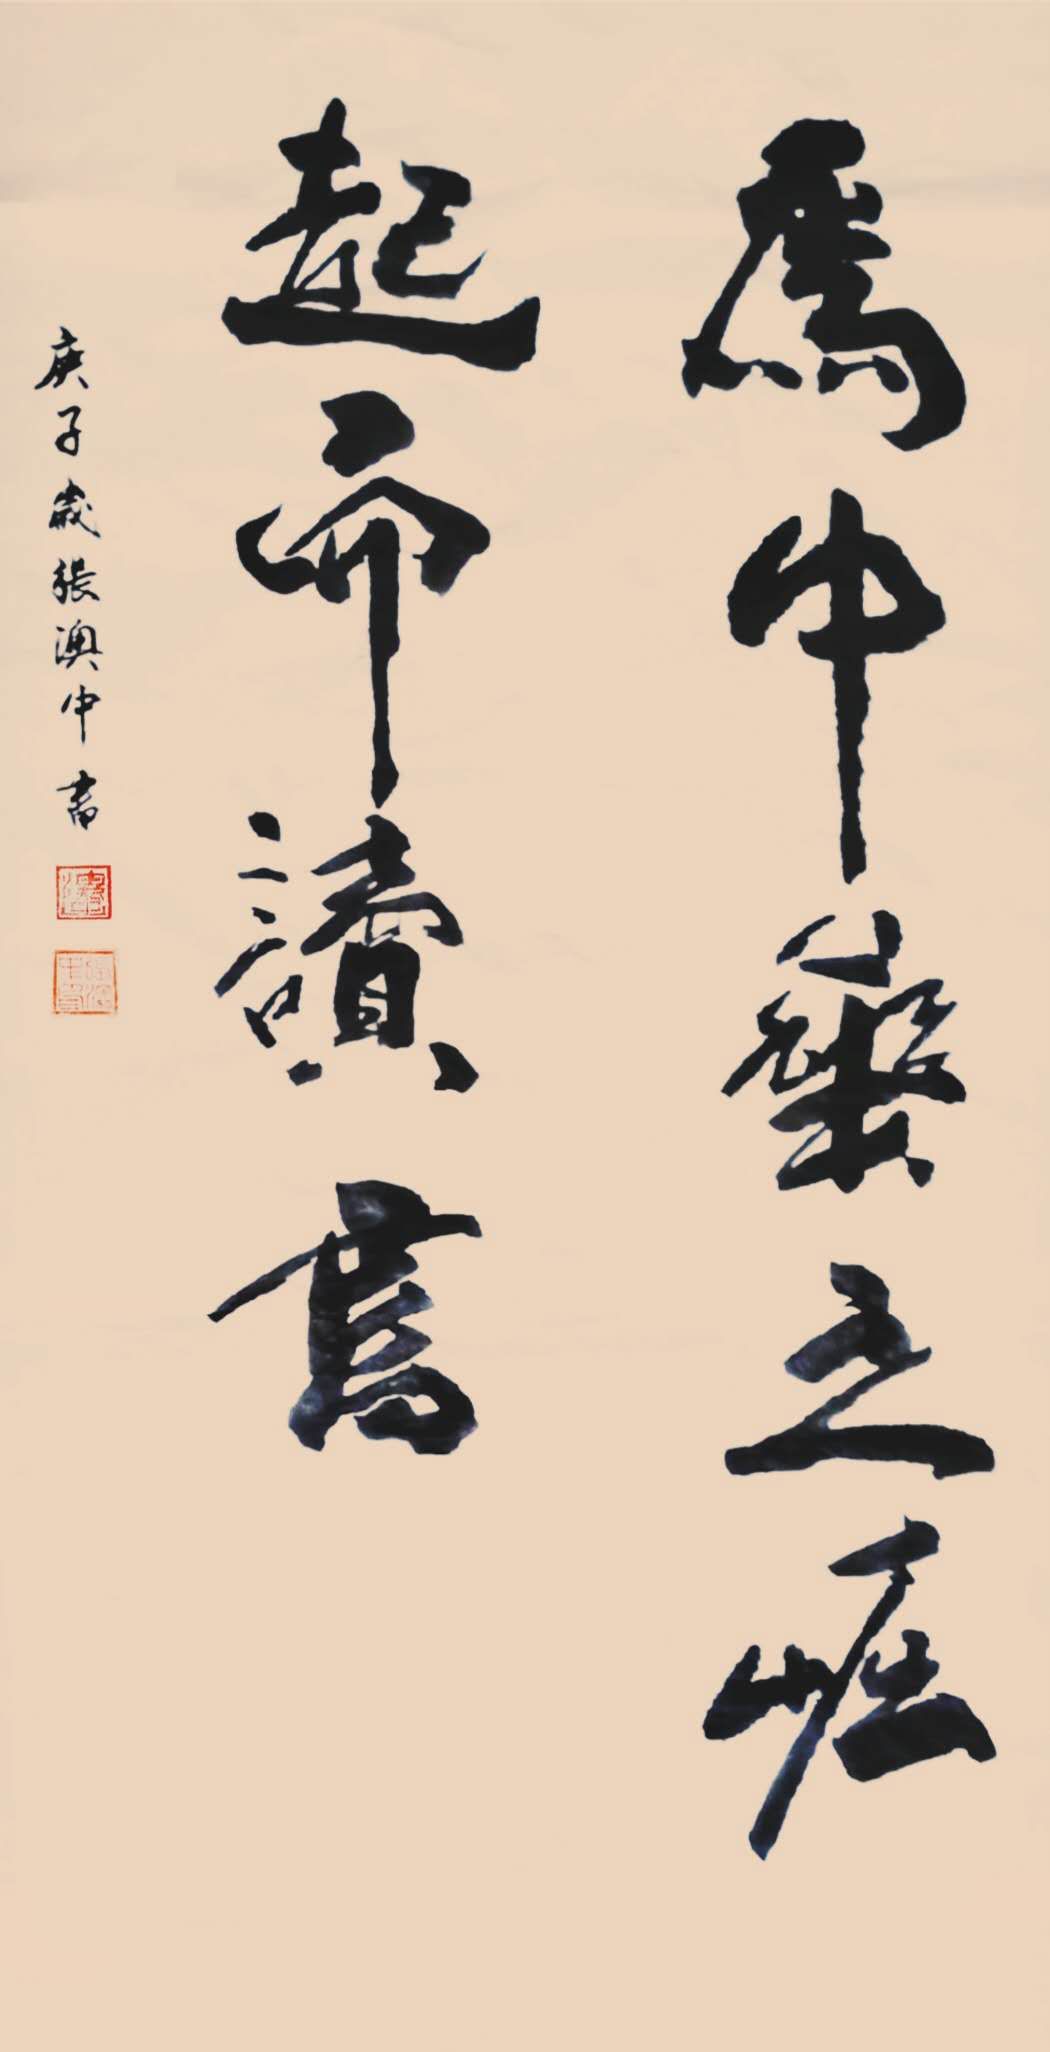 為中華之崛
起而讀書
庚子歲張澳中書